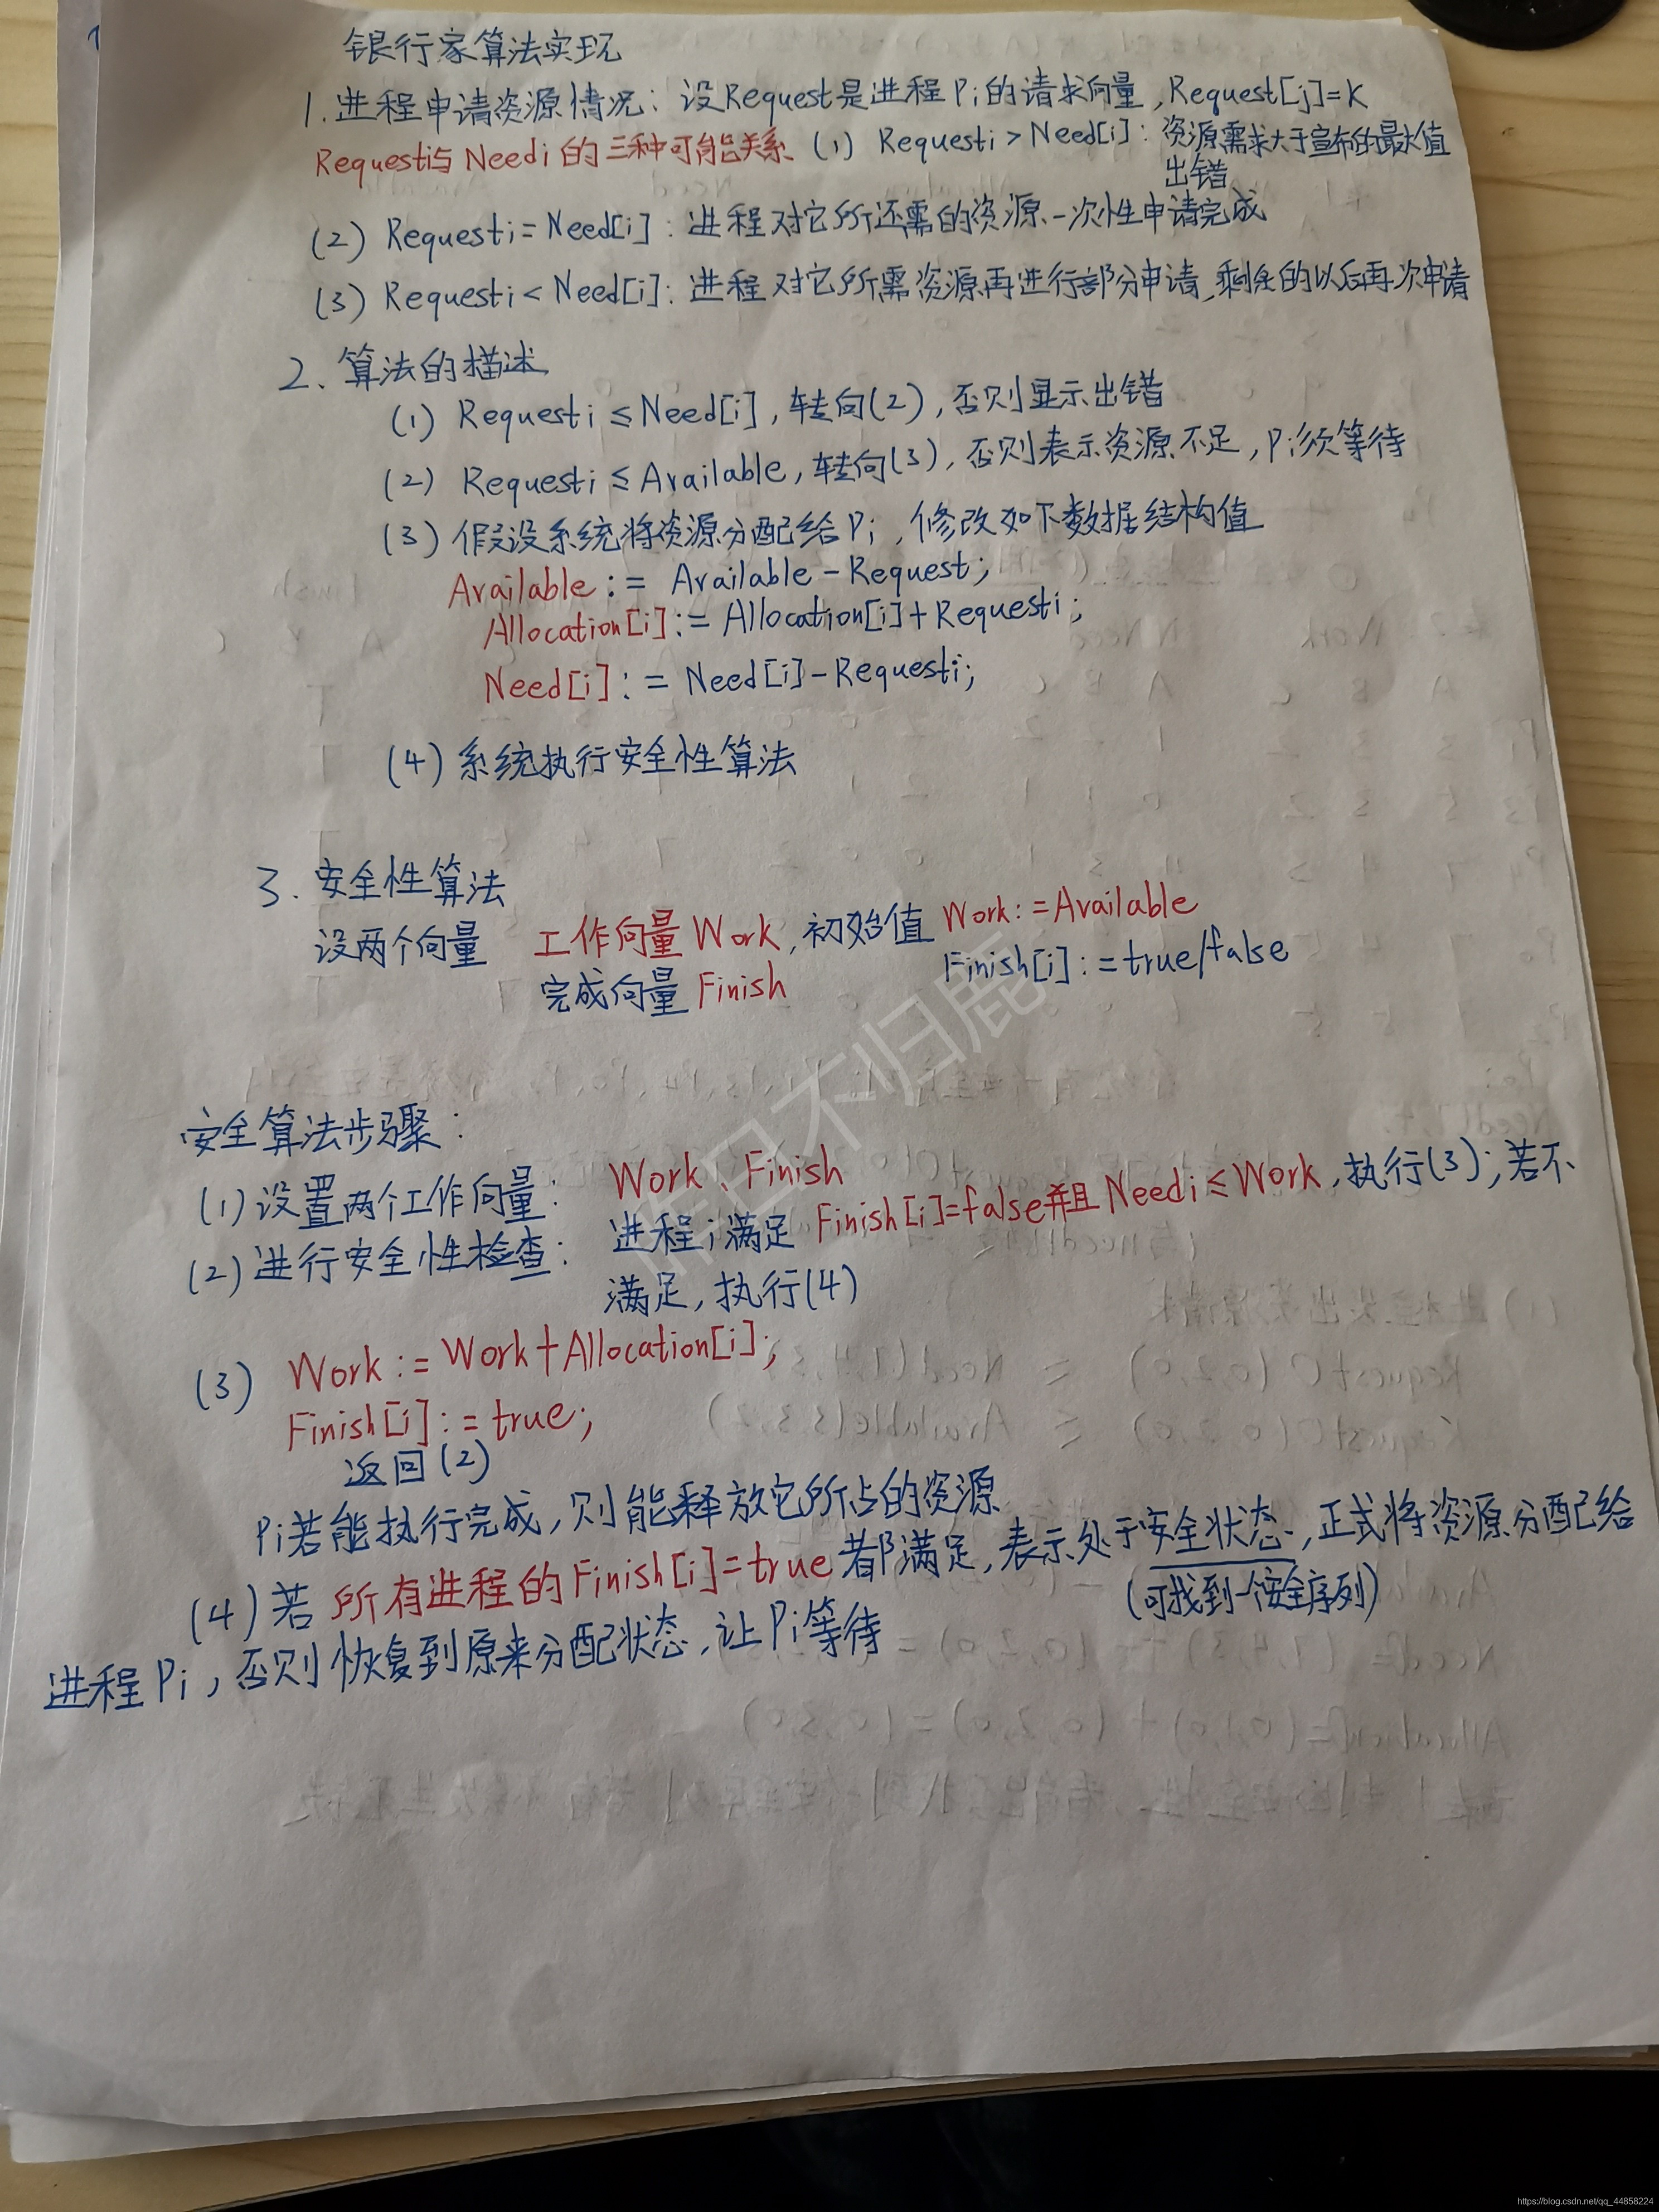 银行家算法实现
1.进程申请资源情况：设Request是进程Pi的请求向量,Request[j]=K
Requesti与Needi的三种可能关系 (1) Requesti>Need[i]：资源需求大于宣布的最大值
出错
(2) Requesti=Need[i]：进程对它所还需的资源一次性申请完成
(3) Requesti<Need[i]：进程对它所需资源再进行部分申请,剩余的以后再次申请
2、算法的描述
(1) Requesti≤Need[i],转向(2),否则显示出错
(2) Requesti≤Available,转向(3),否则表示资源不足,Pi须等待
(3) 假设系统将资源分配给Pi,修改如下数据结构值
Available:= Available-Request;
Allocation[i]:= Allocation[i]+Requesti;
Need[i]:= Need[i]-Requesti;
(4) 系统执行安全性算法
3.安全性算法
设两个向量 工作向量Work,初始值 Work:=Available
完成向量 Finish Finish[i]:=true/false
安全算法步骤：
(1)设置两个工作向量： Work、Finish
(2)进行安全性检查： 进程i满足Finish[i]=false并且Needi≤Work,执行(3);若不
满足,执行(4)
(3) Work:=Work+Allocation[i];
Finish[i]:=true;
返回(2)
Pi若能执行完成,则能释放它所占的资源
(4)若 所有进程的Finish[i]=true都满足,表示处于安全状态,正式将资源分配给
(可找到一个安全序列)
进程Pi,否则恢复到原来分配状态,让Pi等待
不归鹿
https://blog.csdn.net/qq_44858224